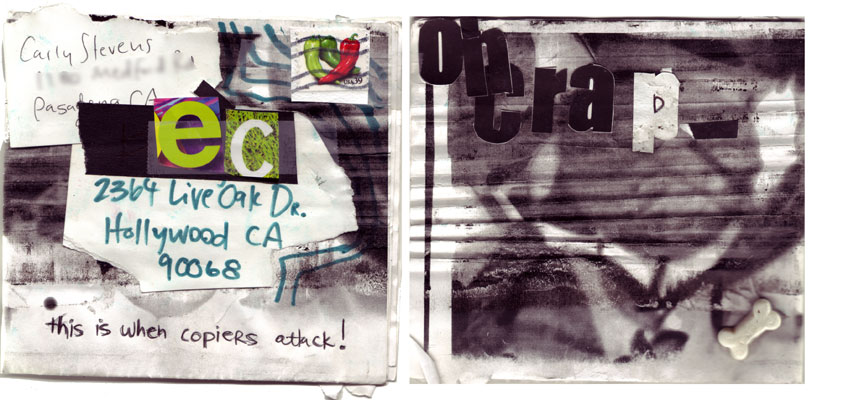 Carly Stevens
Pasadena CA
ec
2364 Live Oak Dr.
Hollywood CA
90068
this is when copiers attack!
on
crap_